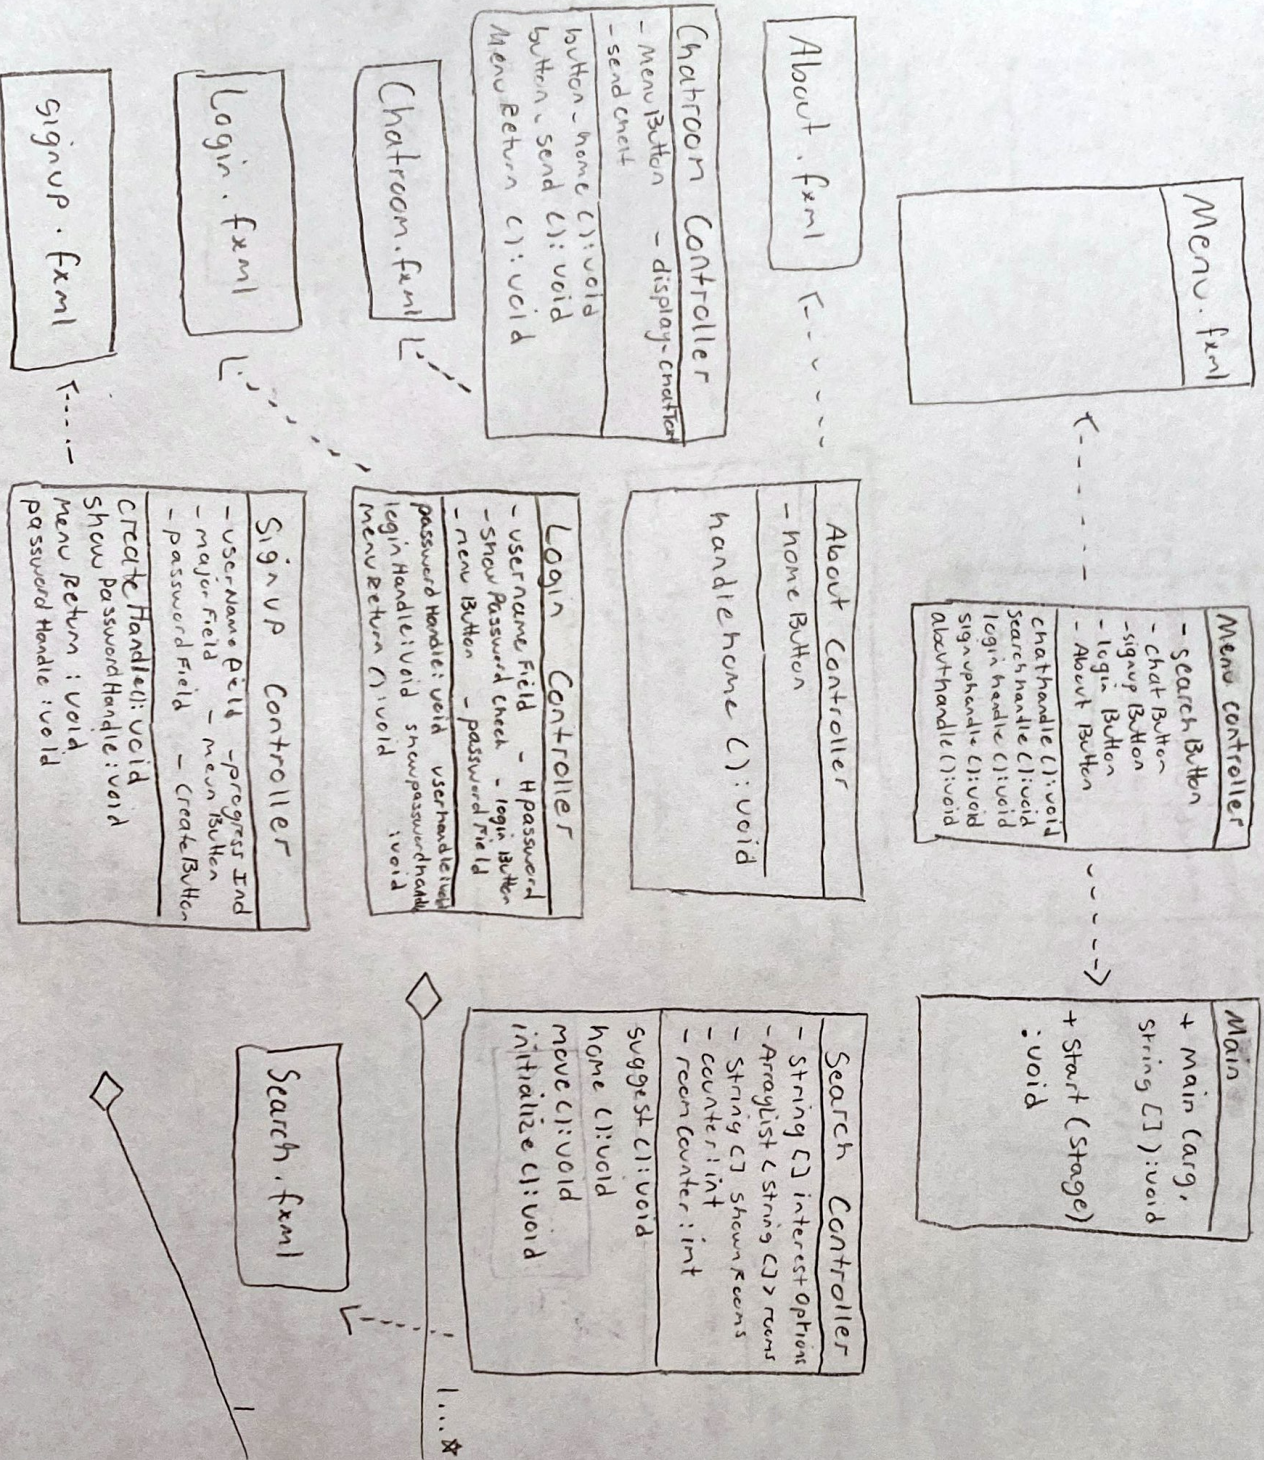 Menu.fxml
Menu controller
- searchButton
- chatButton
- signup Button
- login Button
- About Button
chathandle():void
Searchhandle():void
loginhandle():void
signuphandle():void
abouthandle():void
Main
+ Main (arg,
String []):void
+ Start (Stage)
:void
About.fxml
About Controller
- homeButton
handlehome ():void
Search Controller
- String [] interestOptions
- ArrayList<String[]> rooms
- String [] shownRooms
- counter:int
- roomCounter:int
suggest():void
home():void
move():void
initialize():void
Chatroom Controller
- MenuButton - display-chatText
- sendchat
button-home():void
button-send():void
Menu Return ():void
Chatroom.fxml
Login Controller
- username Field - Hpassword
- showPassword Check - login Button
- menu Button - passwordField
passwordHandle:void userhandle:void
loginHandle:void showpasswordhandle
MenuReturn():void :void
1...*
Login.fxml
Search.fxml
Signup Controller
- userNameField - progressInd
- majorField - menuButton
- passwordField - CreateButton
CreateHandle():void
ShowPasswordHandle:void
Menu Return :void
passwordHandle:void
1
signup.fxml